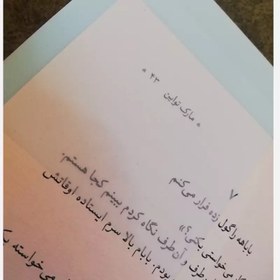 « مارک تواین » ۲۳
۷
باباهه را گول زده فرار می‌کنم
می‌خواستی بکنی؟»
و آن طرف نگاه کردم ببینم کجا هستم.
بودم. بابام بالا سرم ایستاده اوقاتش
می‌خواسته